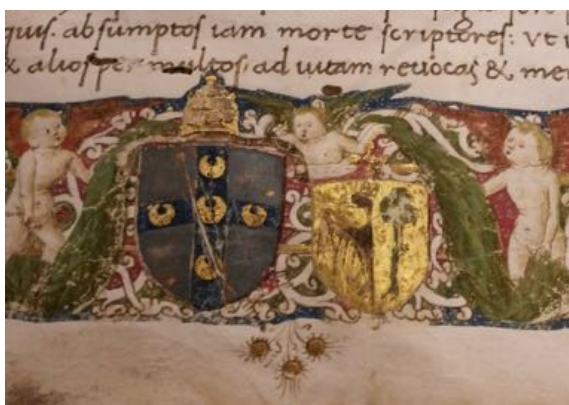 quis. absumptos iam morte scriptores: vt i
& aliosper multos. ad uitam reuocas & me